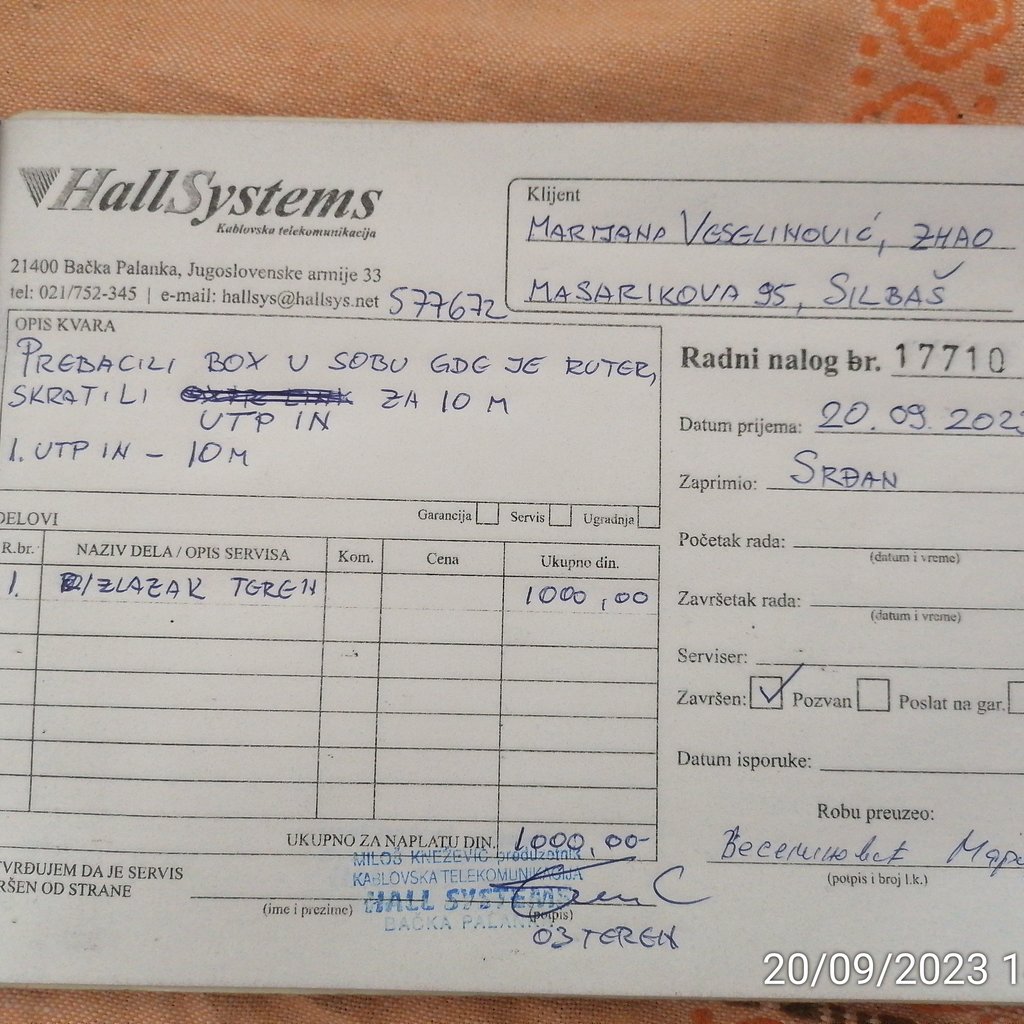 HallSystems
Kablovska telekomunikacija
21400 Bačka Palanka, Jugoslovenske armije 33
tel: 021/752-345 | e-mail: hallsys@hallsys.net 577672
Klijent
MARIJANA VESELINOVIĆ, ZHAO
MASARIKOVA 95, SILBAŠ
OPIS KVARA
PREBACILI BOX U SOBU GDE JE RUTER,
SKRATILI ZA 10 M
UTP IN
1. UTP IN - 10M
Radni nalog br. 17710
Datum prijema: 20.09.202
Zaprimio: SRĐAN
Početak rada:
(datum i vreme)
Završetak rada:
(datum i vreme)
Serviser:
Završen: ✓ Pozvan Poslat na gar.
Datum isporuke:
Robu preuzeo:
(potpis i broj l.k.)
DELOVI Garancija Servis Ugradnja
R.br. NAZIV DELA / OPIS SERVISA Kom. Cena Ukupno din.
1. IZLAZAK TEREN 1000,00
UKUPNO ZA NAPLATU DIN. 1000,00-
TVRĐUJEM DA JE SERVIS
RŠEN OD STRANE
(ime i prezime)
MILOŠ KNEŽEVIĆ preduzetnik
KABLOVSKA TELEKOMUNIKACIJA
HALL SYSTEMS
BAČKA PALANKA
(potpis)
03 TEREN
20/09/2023 1